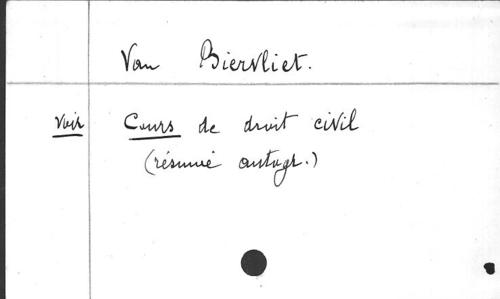 Van Biervliet.
Voir Cours de droit civil
(résumé autogr.)